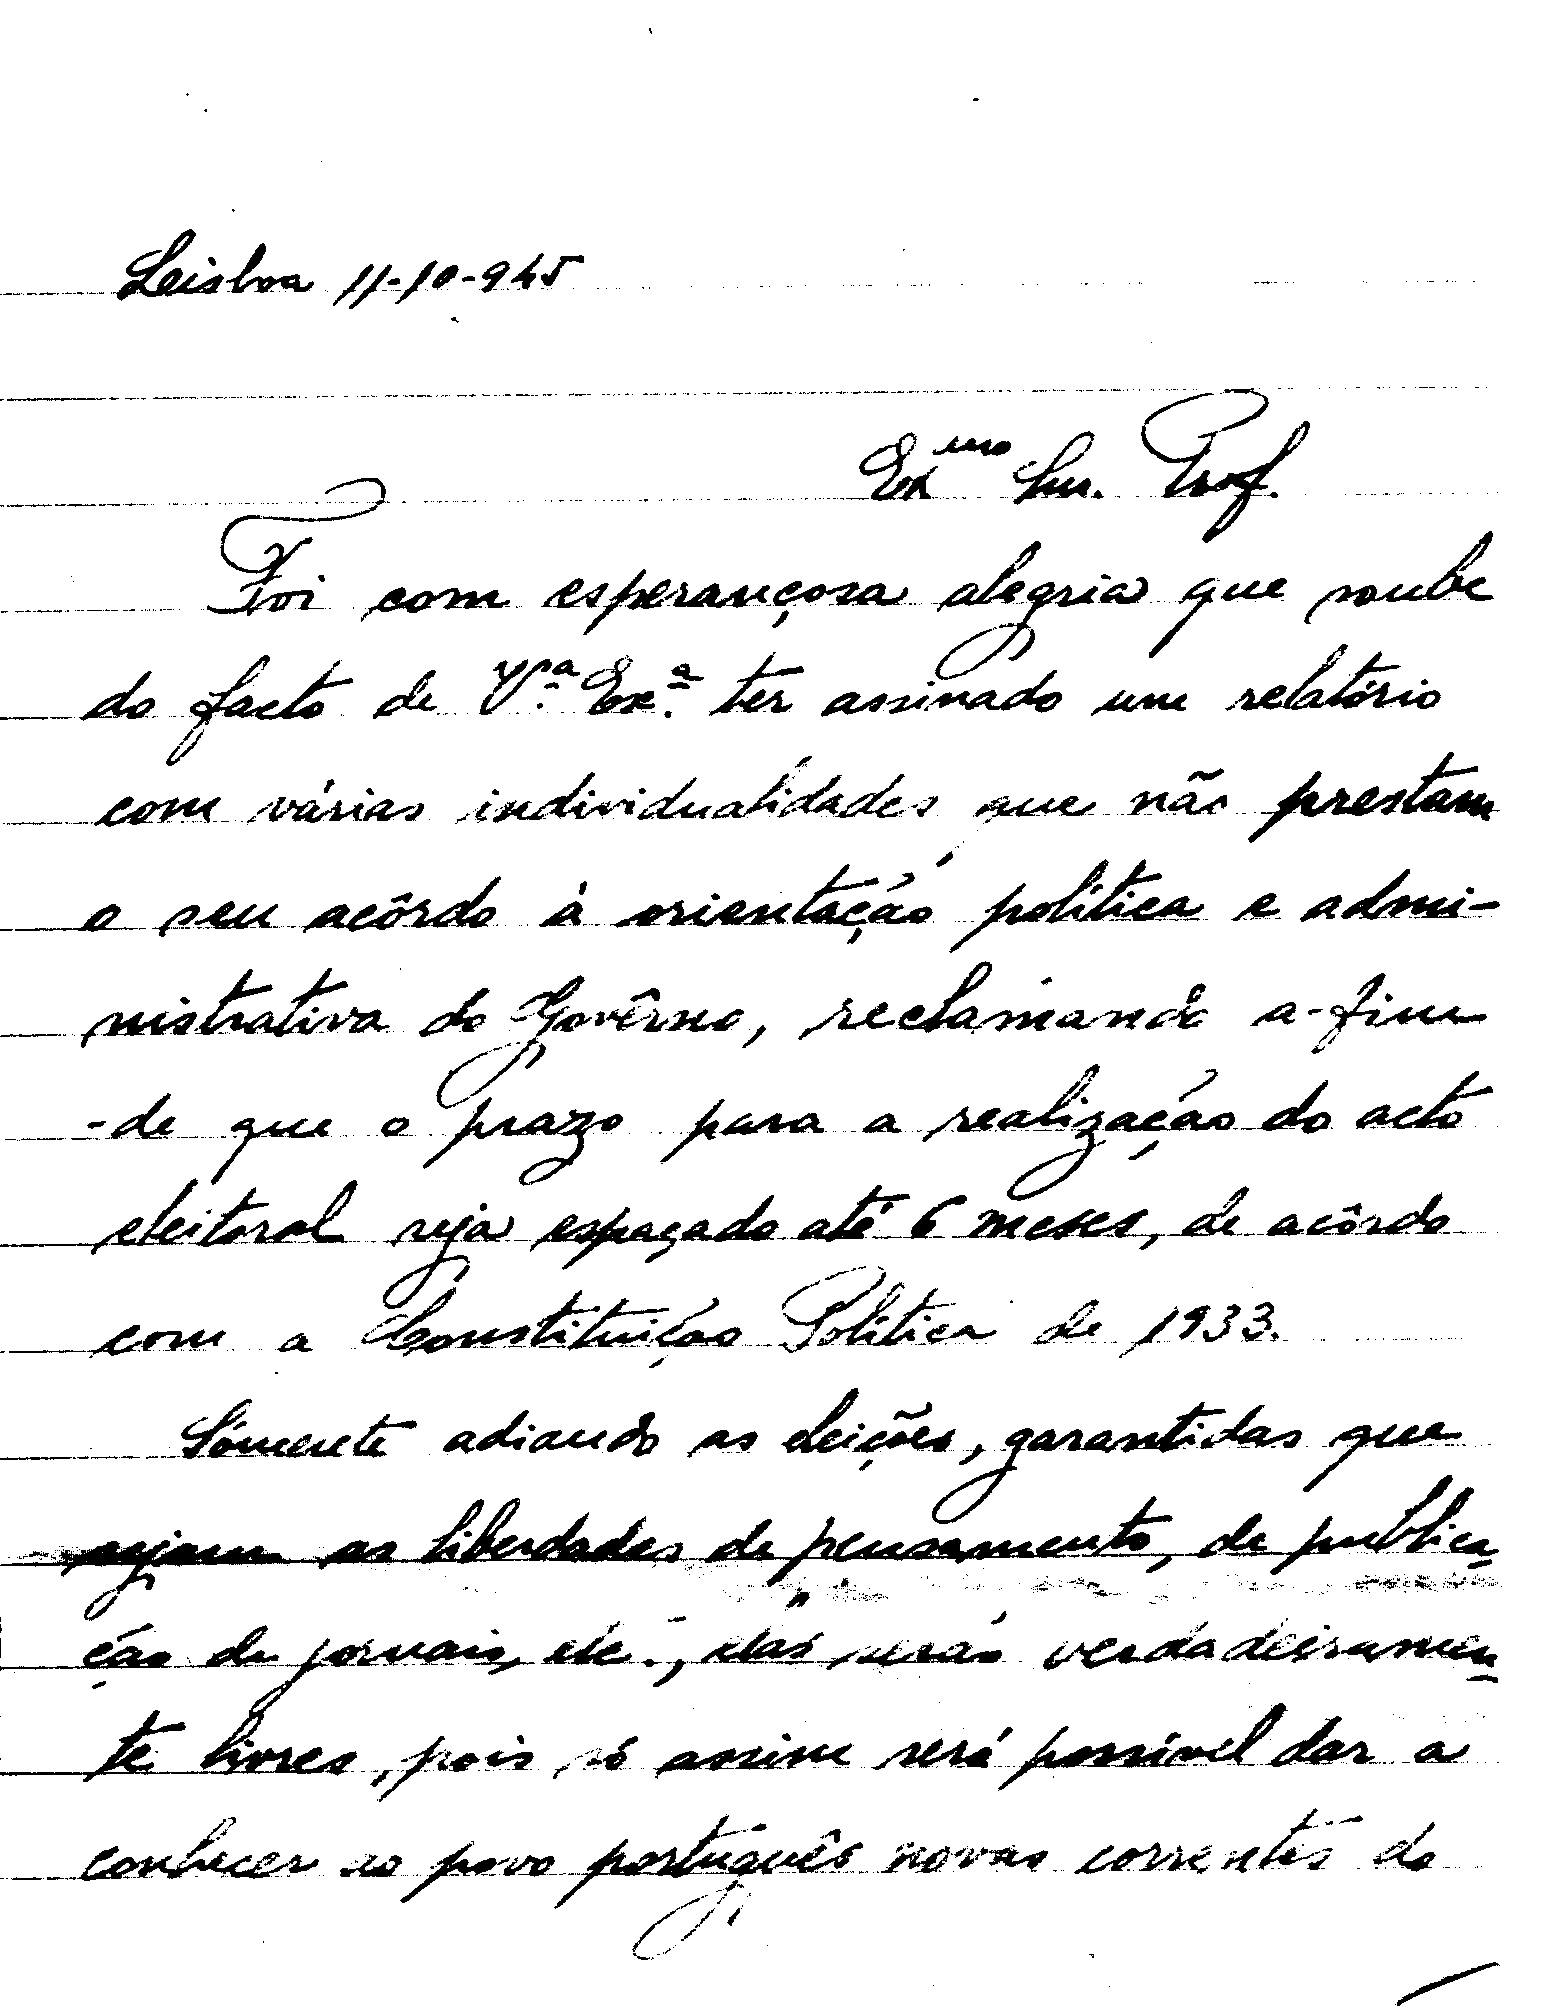 Lisboa 11-10-945
Exmo Snr. Prof.
Foi com esperançosa alegria que soube
do facto de V.ª Ex.ª ter assinado um relatório
com várias individualidades que não prestam
o seu acôrdo à orientação política e admi-
nistrativa do Govêrno, reclamando a-fim
-de que o prazo para a realização do acto
eleitoral seja espaçado até 6 meses, de acôrdo
com a Constituição Política de 1933.
Sómente adiando as eleições, garantidas que
sejam as liberdades de pensamento, de publica-
ção de jornais, etc., elas serão verdadeiramen-
te livres, pois só assim será possível dar a
conhecer ao povo português novas correntes do